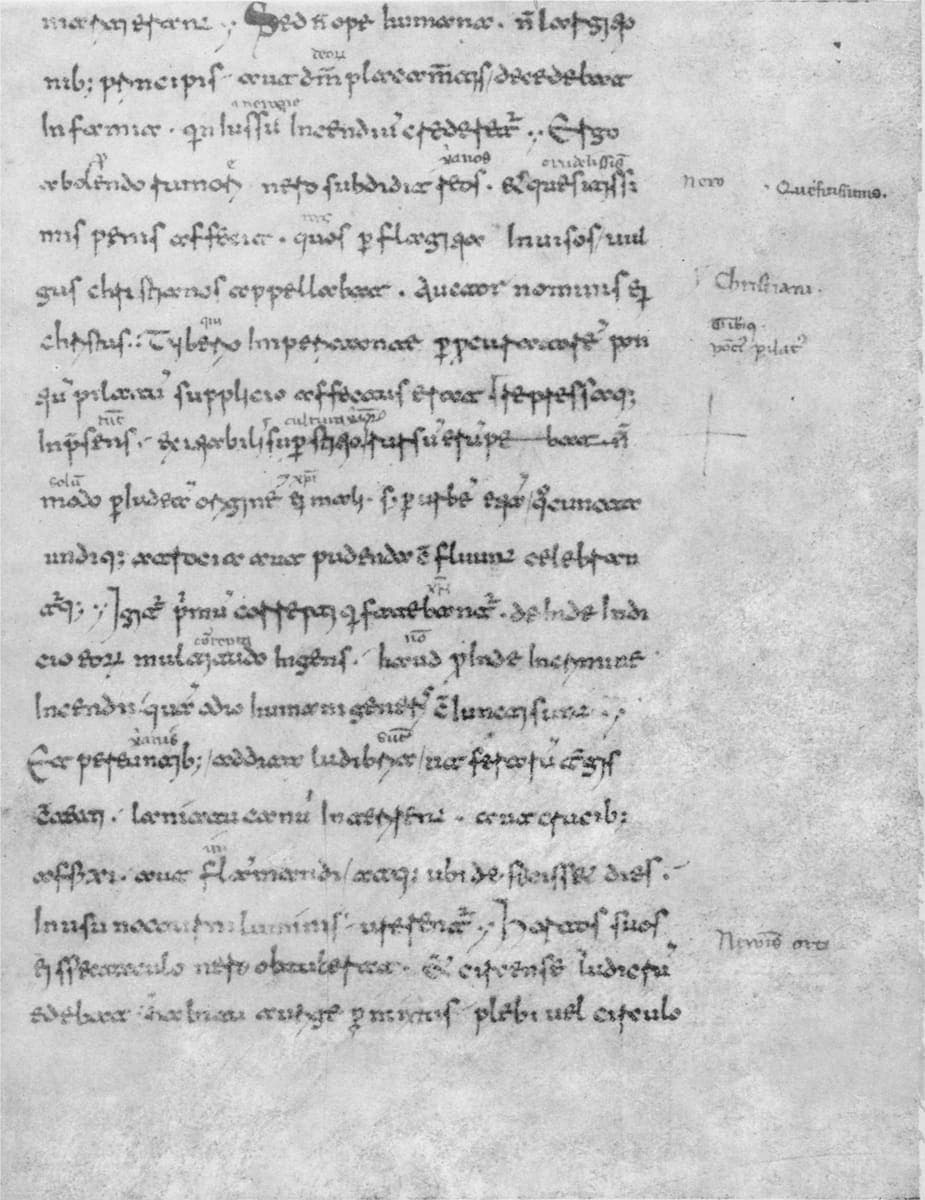 mariti erant. Sed n̄ ope humana. n̄ largitio
nib; principis aut dm̄ placamtis decedebat
infamia. quin iussū incendiū crederet̄. Ergo
abolendo rumori nero subdidit reos. & quesitissi
mis penis affecit. quos ꝑ flagitia invisos vul
gus christianos appellabat. Auctor nominis ei
christus. Tiberio imperitante ꝑ ꝓcuratorē pon
tiū pilatū supplicio affectus erat repressaq;
in p̄sens. exitiabilis suꝑstitio rursū erūpebat. n̄
modo ꝑ iudeā originē ei mali. s; ꝑ urbē etiā quo cuncta
undiq; atrocia aut pudenda c̄fluunt celebran
tr̄q; Igit̄ p̄mū correpti qui fatebant̄. deinde indi
cio eorū multitudo ingens. haud ꝓinde in crimine
incendii quā odio humani generis c̄iuncti sunt.
Et pereuntib; addita ludibria ut ferarū t̄gis
c̄tecti. laniatu canū interirent. aut crucib;
affixi. aut flāmandi atq; ubi defecisset dies.
in usu nocturni luminis urerent̄. Hortos suos
ei spectaculo nero obtulerat. & circense ludicrū
edebat habitu aurige ꝑmixtus plebi vel circulo
Nero
Christiani.
pilat